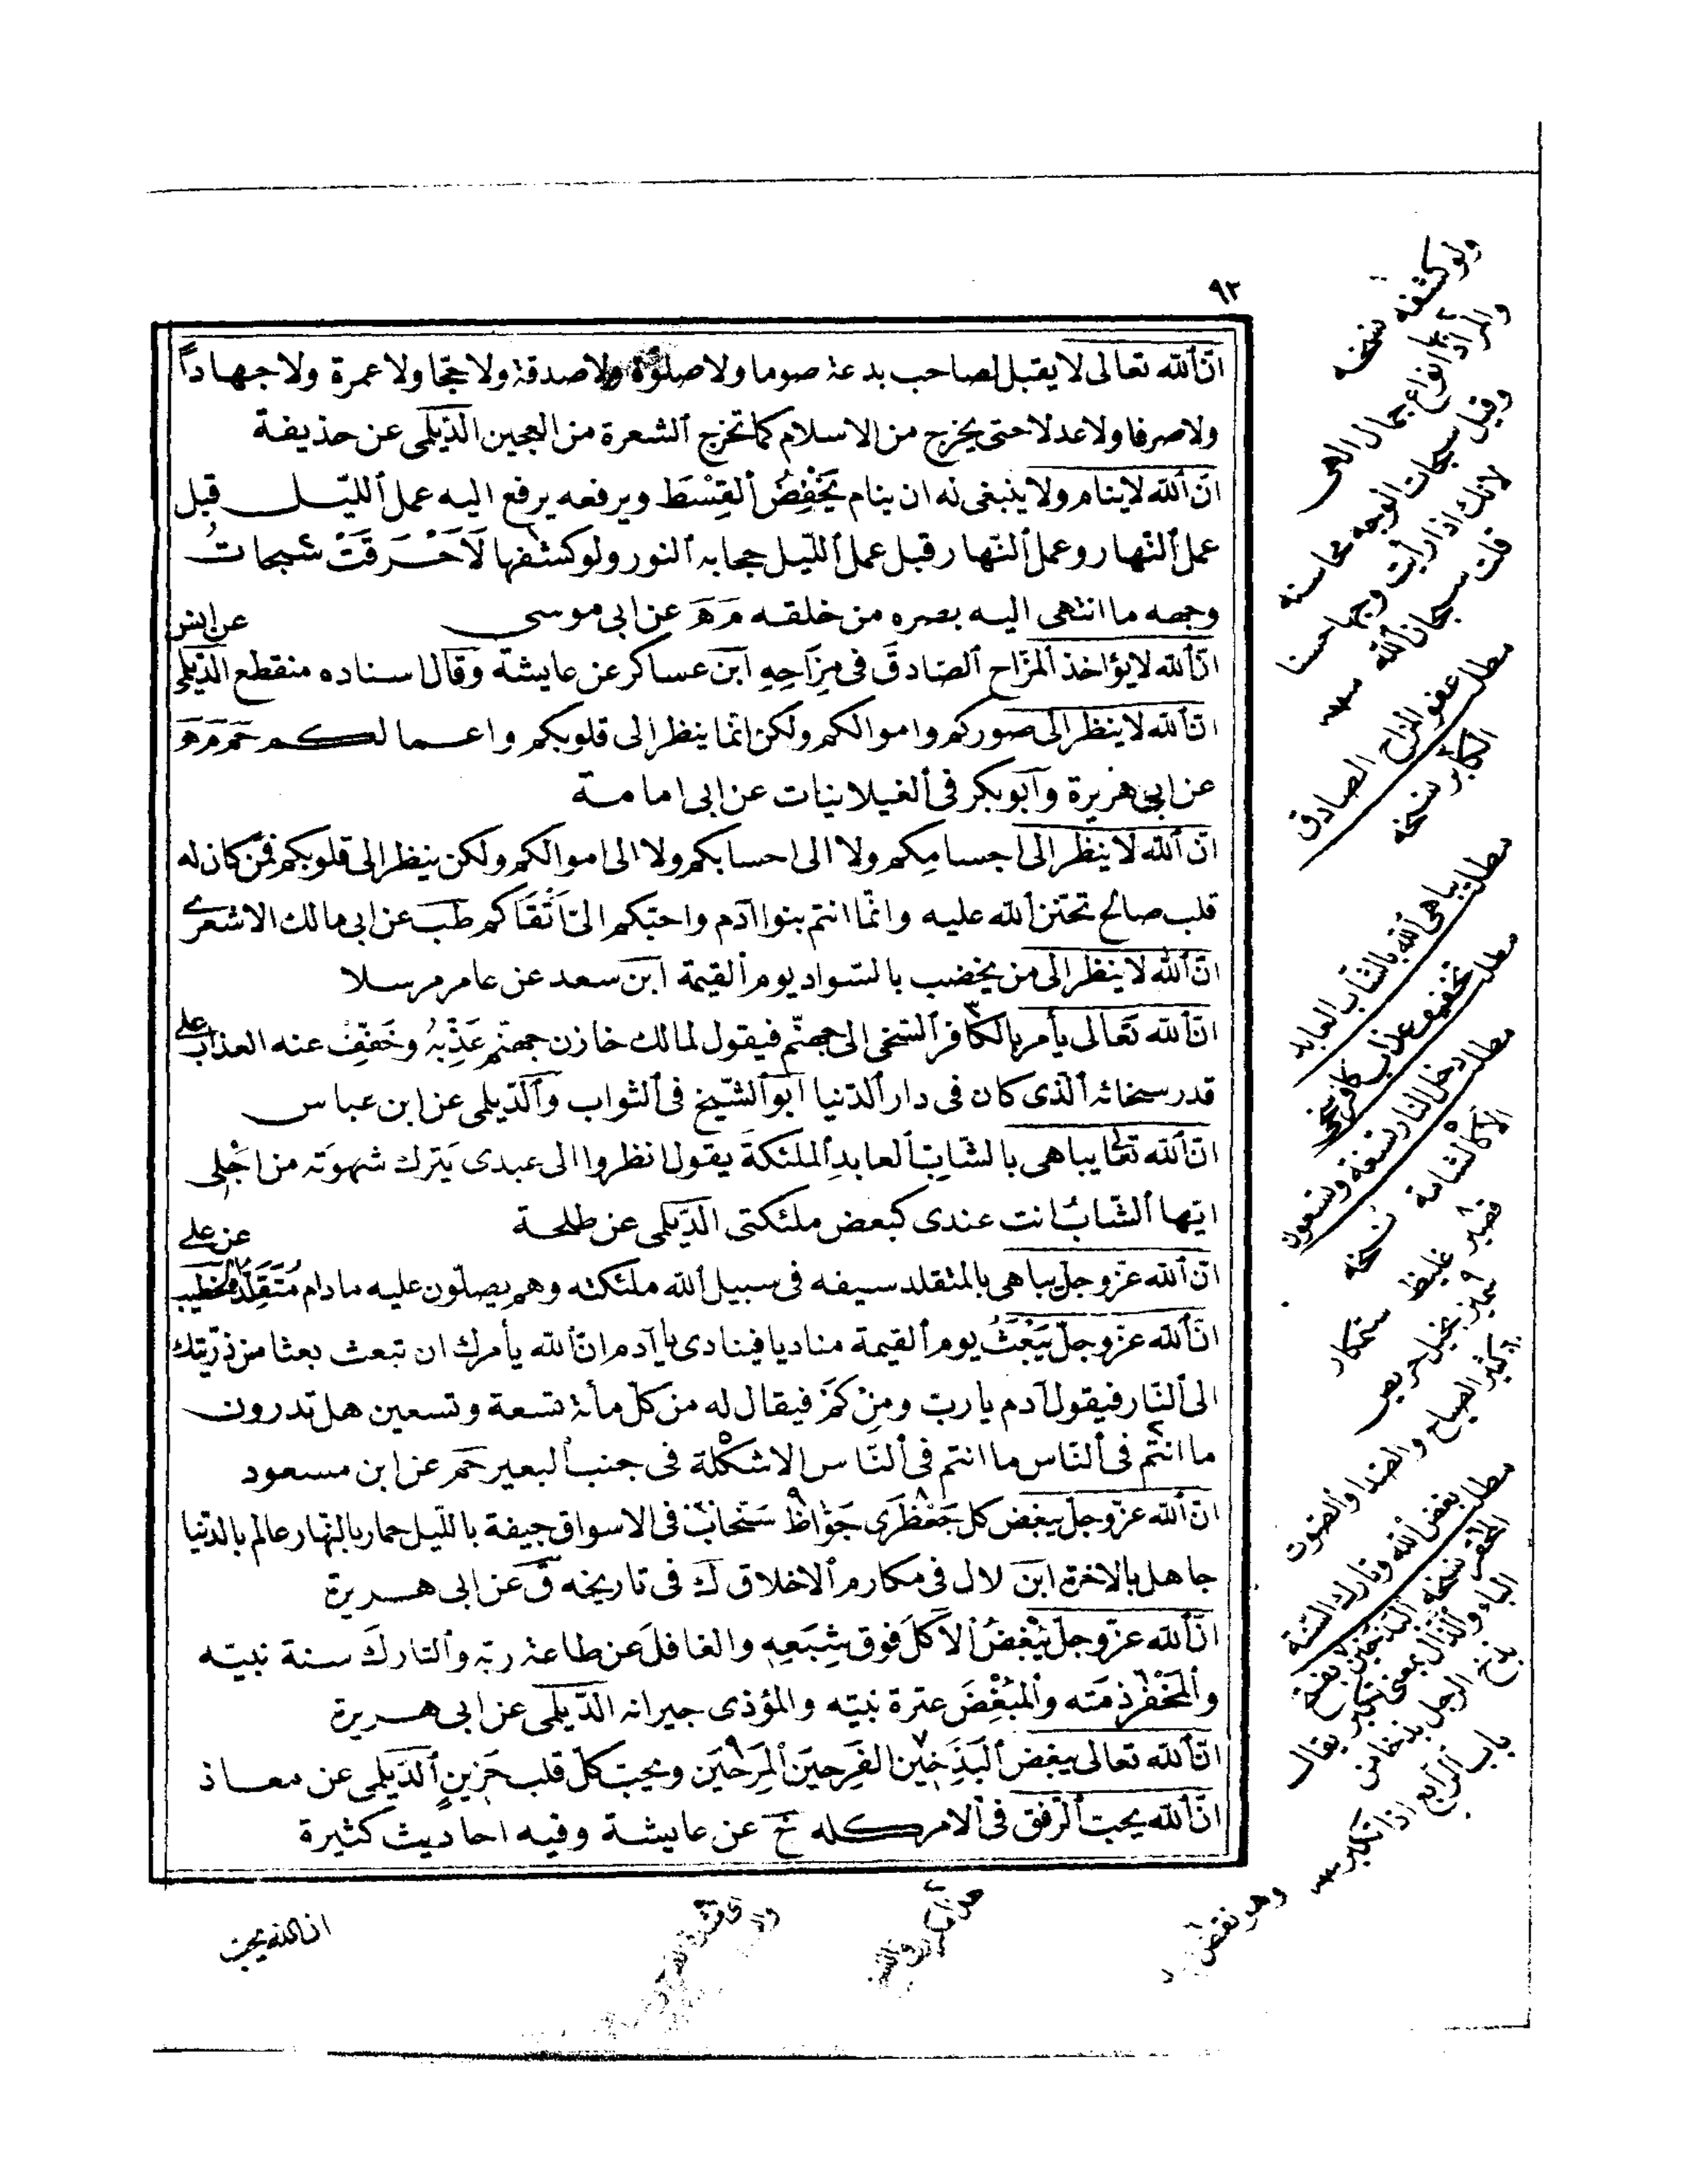 ٩٢
انّ الله تعالى لا يقبل لصاحب بدعة صوما ولا صلوة ولا صدقة ولا حجّا ولا عمرة ولا جهاداً
ولا صرفا ولا عدلا حتى يخرج من الاسلام كما تخرج الشعرة من العجين الدّيلمى عن حذيفة
انّ الله لا ينام ولا ينبغى له ان ينام يَخْفِضُ القِسْطَ ويرفعه يرفع اليه عمل اللّيل قبل
عمل النّهار وعمل النّهار قبل عمل اللّيل حجابه النور ولو كشفها لَاَحْرَقَتْ سُبحاتُ
وجهه ما انتهى اليه بصره من خلقه مَ هَ عن ابى موسى
انّ الله لا يؤاخذ المزّاح الصّادقَ فى مِزَاحِهِ ابن عساكر عن عايشة وقال اسناده منقطع الدّيلمى
عن انس
انّ الله لا ينظر الى صوركم واموالكم ولكن انّما ينظر الى قلوبكم واعمالكم حَم مَ هَ
عن ابى هريرة وابو بكر فى الغيلانيات عن ابى امامة
انّ الله لا ينظر الى اجسامِكم ولا الى احسابكم ولا الى اموالكم ولكن ينظر الى قلوبكم فمَن كان له
قلب صالح تحنّن الله عليه وانّما انتم بنوا آدم واحبّكم الىّ اَتْقَاكم طَب عن ابى مالك الاشعرى
انّ الله لا ينظر الى من يخضب بالسّواد يوم القيمة ابن سعد عن عامر مرسلا
انّ الله تَعَالى يأمر بالكافر السّخى الى جهنّم فيقول لمالك خازن جهنّم عَذِّبْهُ وخَفِّفْ عنه العذاب على
قدر سخائه الّذى كان فى دار الدّنيا ابو الشّيخ فى الثواب والدّيلمى عن ابن عباس
انّ الله تعالى يباهى بالشّابّ العابدِ الملئكةَ يقول انظروا الى عبدى يَترك شهوَته من اَجْلى
ايّها الشّابُّ انت عندى كبعض ملئكتى الدّيلمى عن طلحة
انّ الله عزّ وجلّ يباهى بالمتقلد سيفه فى سبيل الله ملئكته وهم يصلّون عليه ما دام مُتَقَلِّدَه الخطيب
عن على
انّ الله عزّ وجلّ يَبْعَثُ يوم القيمة مناديا فينادى يا آدم انّ الله يأمرك ان تبعث بعثا من ذرّيتك
الى النّار فيقول آدم يا ربّ ومِنْ كَمْ فيقال له من كلّ مأة تسعة وتسعين هل تدرون
ما انتم فى النّاس ما انتم فى النّاس الا شكْلة فى جنب البعير حَم عن ابن مسعود
انّ الله عزّ وجلّ يبغض كل جَعْظَرِى جَوّاظ سَخَّاب فى الاسواق جيفة باللّيل حمار بالنّهار عالم بالدّنيا
جاهل بالاخرة ابن لال فى مكارم الاخلاق ك فى تاريخه ق عن ابى هريرة
انّ الله عزّ وجلّ يُبْغِضُ الآكلَ فوق شِبَعِهِ والغافلَ عن طاعة ربّه والتاركَ سنة نبيّه
والمُخْفِرَ ذمّته والمُبْغِضَ عترة نبيّه والمؤذى جيرانه الدّيلمى عن ابى هريرة
انّ الله تعالى يبغض البَذَخِين الفَرِحين المَرِحين ويحبّ كلّ قلب حَزينٍ الدّيلمى عن معاذ
انّ الله يحبّ الرّفق فى الامر كله خ عن عايشة وفيه احاديث كثيرة
ولو كشفه نسخه
والمراد انواع جمال الهى
وقيل سبحات الوجه محاسنه
لانك اذا رأيت وجها حسنا
قلت سبحان الله
مطلب عفو المزاح الصادق
الكابر نسخه
مطلب يباهى الله بالشاب العابد
مطلب تخفيف عذاب كافر سخى
مطلب دخل النار تسعة وتسعون
الا كالشامة نسخه
قصير غليظ ستمكار
بخيل حريص
كثير الصياح والصدا والصوت
مطلب بغض الله وتارك السنة
المحقر نسخه البذخين بفتح
الباء والذال بمعنى تكبر يقال
بذخ الرجل بذخا من
باب الرابع اذا تكبر
وهو نقض
ان الله يحب